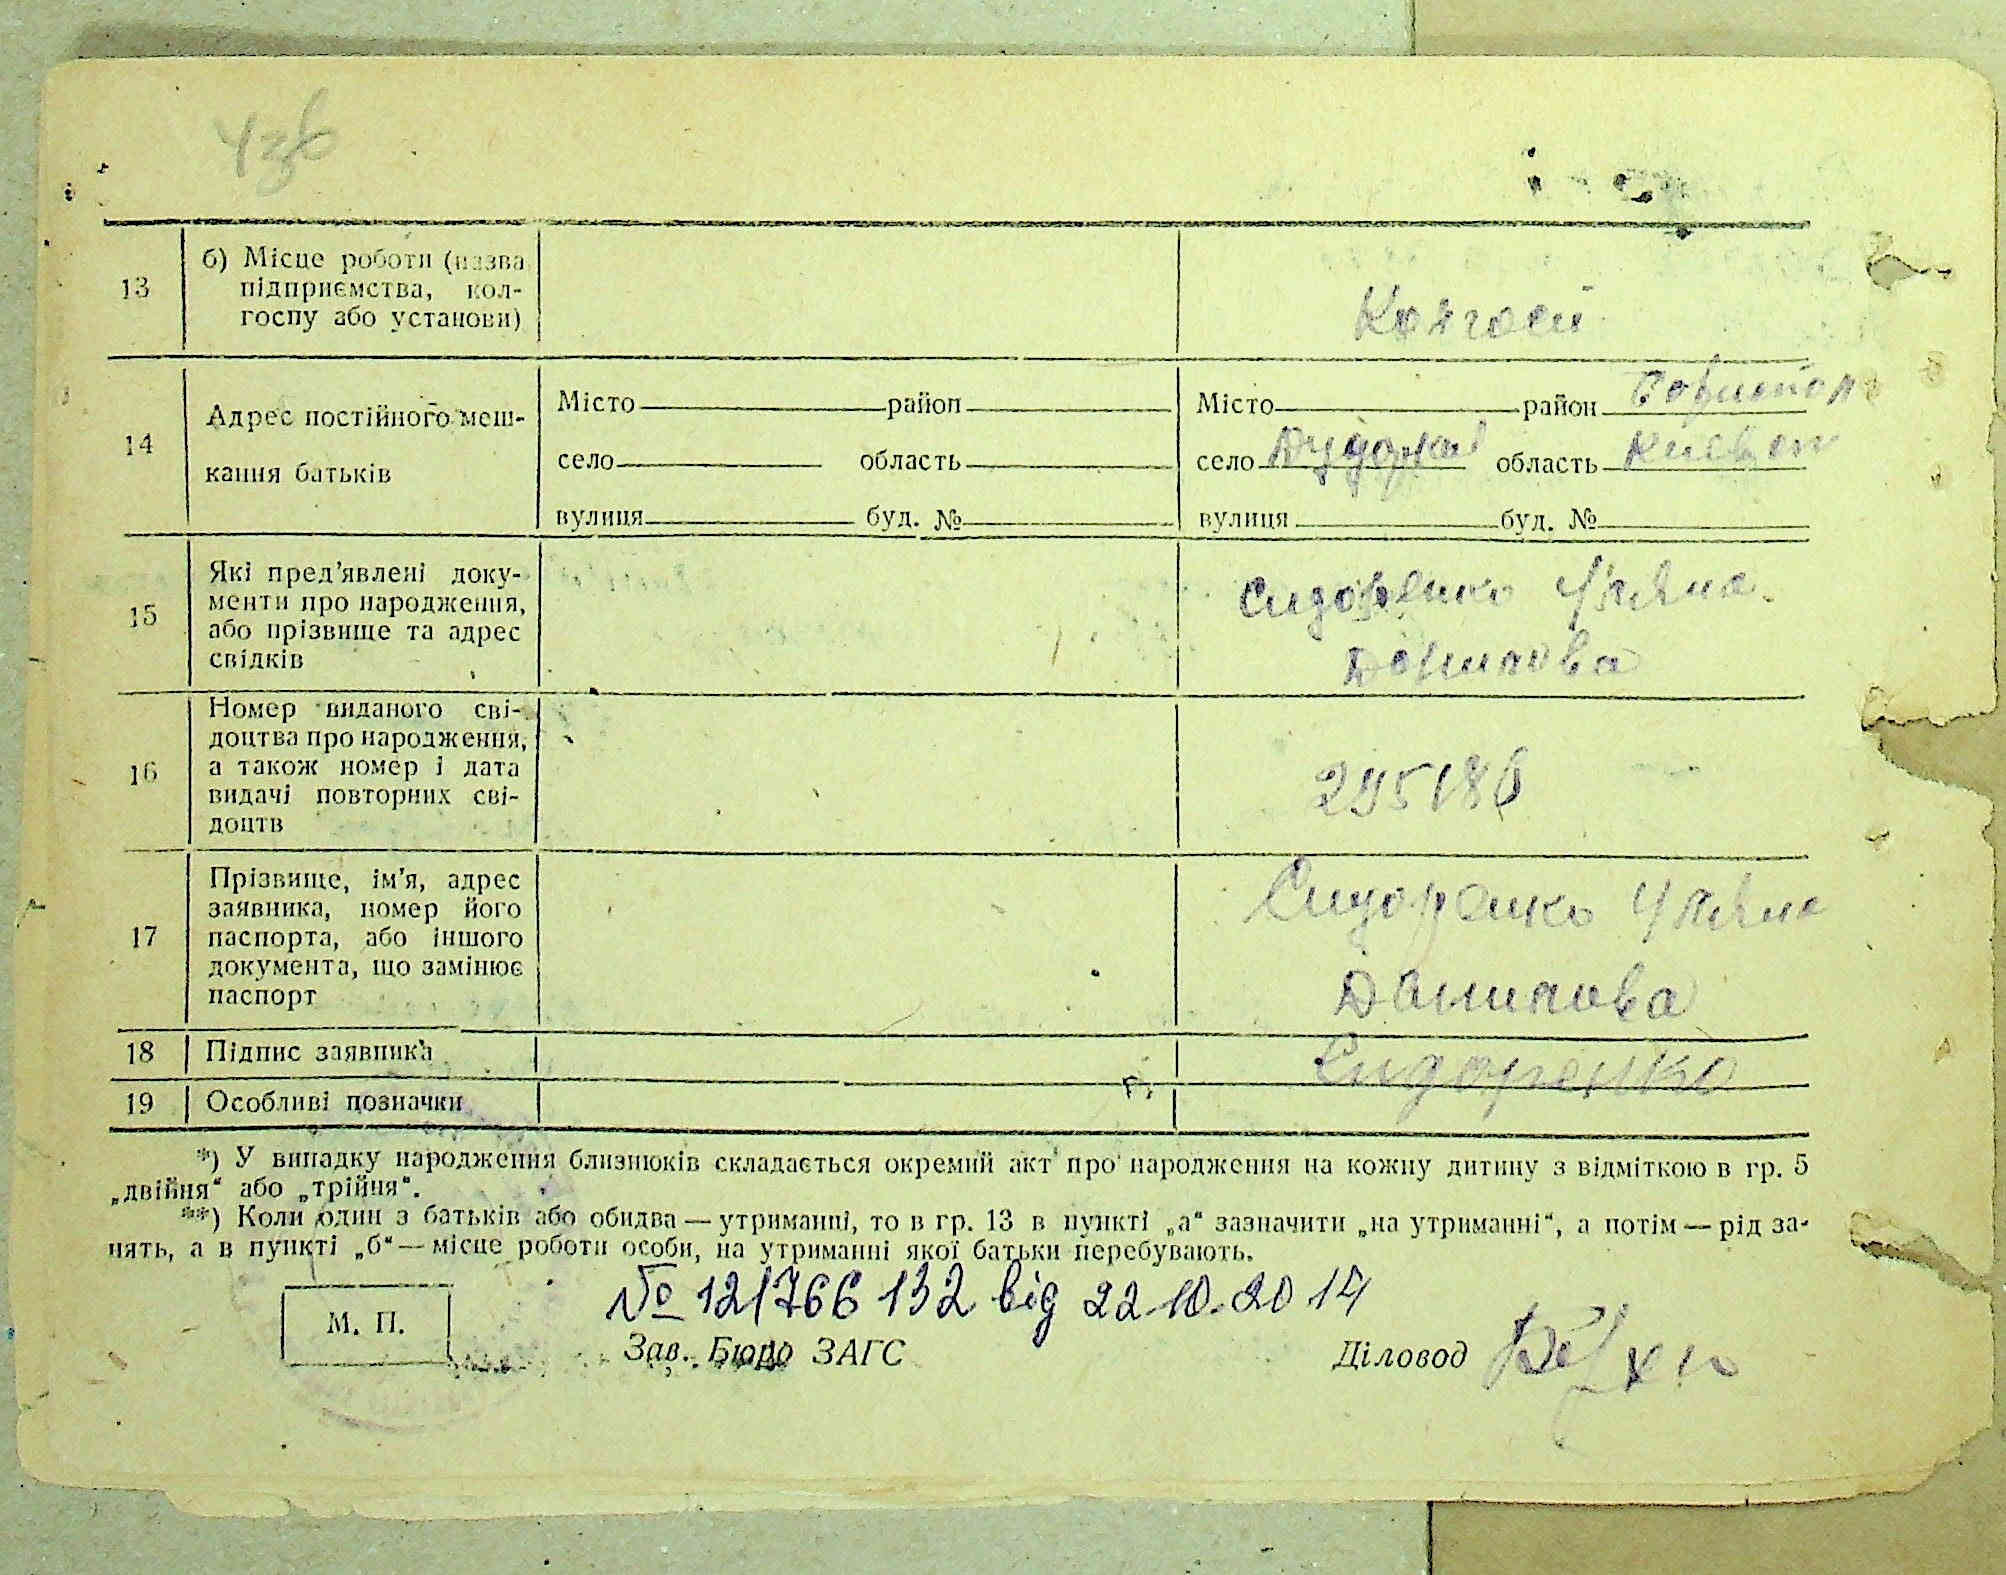 43б
13
б) Місце роботи (назва
підприємства, кол-
госпу або установи)
Колгосп
14
Адрес постійного меш-
кання батьків
Місто район
село область
вулиця буд. №
Місто район
село область Київськ
вулиця буд. №
15
Які пред’явлені доку-
менти про народження,
або прізвище та адрес
свідків
Сидоренко Уляна
Данилова
16
Номер виданого сві-
доцтва про народження,
а також номер і дата
видачі повторних сві-
доцтв
295186
17
Прізвище, ім’я, адрес
заявника, номер його
паспорта, або іншого
документа, що замінює
паспорт
Сидоренко Уляна
Данилова
18
Підпис заявника
Сидоренко
19
Особливі позначки
*) У випадку народження близнюків складається окремий акт про народження на кожну дитину з відміткою в гр. 5
„двійня“ або „трійня“.
**) Коли один з батьків або обидва — утриманці, то в гр. 13 в пункті „а“ зазначити „на утриманні“, а потім — рід за-
нять, а в пункті „б“ — місце роботи особи, на утриманні якої батьки перебувають.
М. П.
№ 121766 132 від 22.10.2014
Зав. Бюро ЗАГС
Діловод